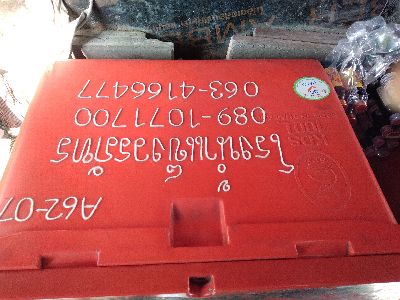 A62-07
โรงน้ำแข็งวรภัทร
089-1071700
063-4166477